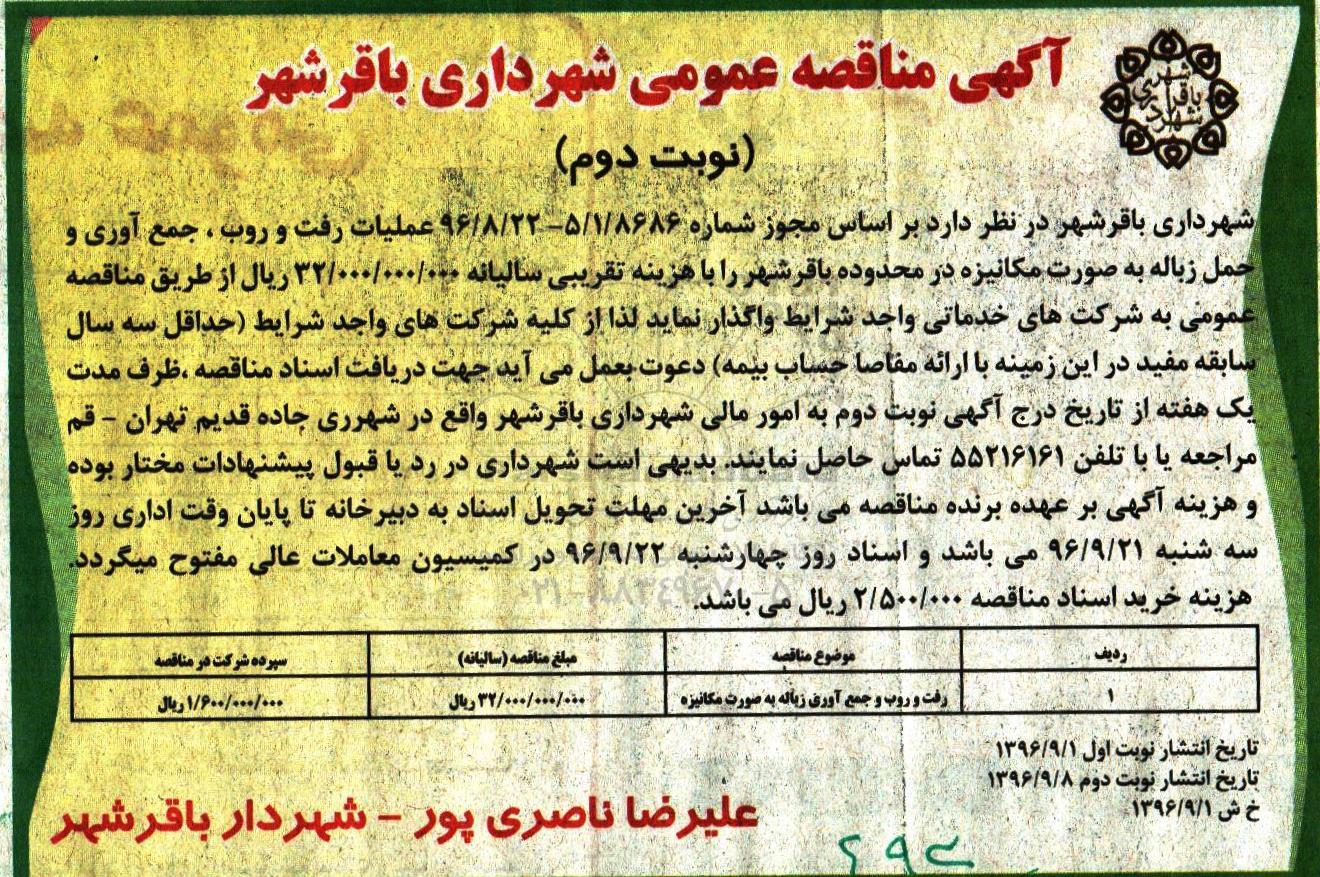 آگهی مناقصه عمومی شهرداری باقرشهر
شهرداری باقرشهر
(نوبت دوم)
شهرداری باقرشهر در نظر دارد بر اساس مجوز شماره ۵/۱/۸۶۸۶–۹۶/۸/۲۲ عملیات رفت و روب ، جمع آوری و
حمل زباله به صورت مکانیزه در محدوده باقرشهر را با هزینه تقریبی سالیانه ۳۲/۰۰۰/۰۰۰/۰۰۰ ریال از طریق مناقصه
عمومی به شرکت های خدماتی واجد شرایط واگذار نماید لذا از کلیه شرکت های واجد شرایط (حداقل سه سال
سابقه مفید در این زمینه با ارائه مفاصا حساب بیمه) دعوت بعمل می آید جهت دریافت اسناد مناقصه ،ظرف مدت
یک هفته از تاریخ درج آگهی نوبت دوم به امور مالی شهرداری باقرشهر واقع در شهرری جاده قدیم تهران – قم
مراجعه یا با تلفن ۵۵۲۱۶۱۶۱ تماس حاصل نمایند. بدیهی است شهرداری در رد یا قبول پیشنهادات مختار بوده
و هزینه آگهی بر عهده برنده مناقصه می باشد آخرین مهلت تحویل اسناد به دبیرخانه تا پایان وقت اداری روز
سه شنبه ۹۶/۹/۲۱ می باشد و اسناد روز چهارشنبه ۹۶/۹/۲۲ در کمیسیون معاملات عالی مفتوح میگردد.
هزینه خرید اسناد مناقصه ۲/۵۰۰/۰۰۰ ریال می باشد.
ردیف موضوع مناقصه مبلغ مناقصه (سالیانه) سپرده شرکت در مناقصه
۱ رفت و روب و جمع آوری زباله به صورت مکانیزه ۳۲/۰۰۰/۰۰۰/۰۰۰ ریال ۱/۶۰۰/۰۰۰/۰۰۰ ریال
تاریخ انتشار نوبت اول ۱۳۹۶/۹/۱
تاریخ انتشار نوبت دوم ۱۳۹۶/۹/۸
خ ش ۱۳۹۶/۹/۱
علیرضا ناصری پور – شهردار باقرشهر